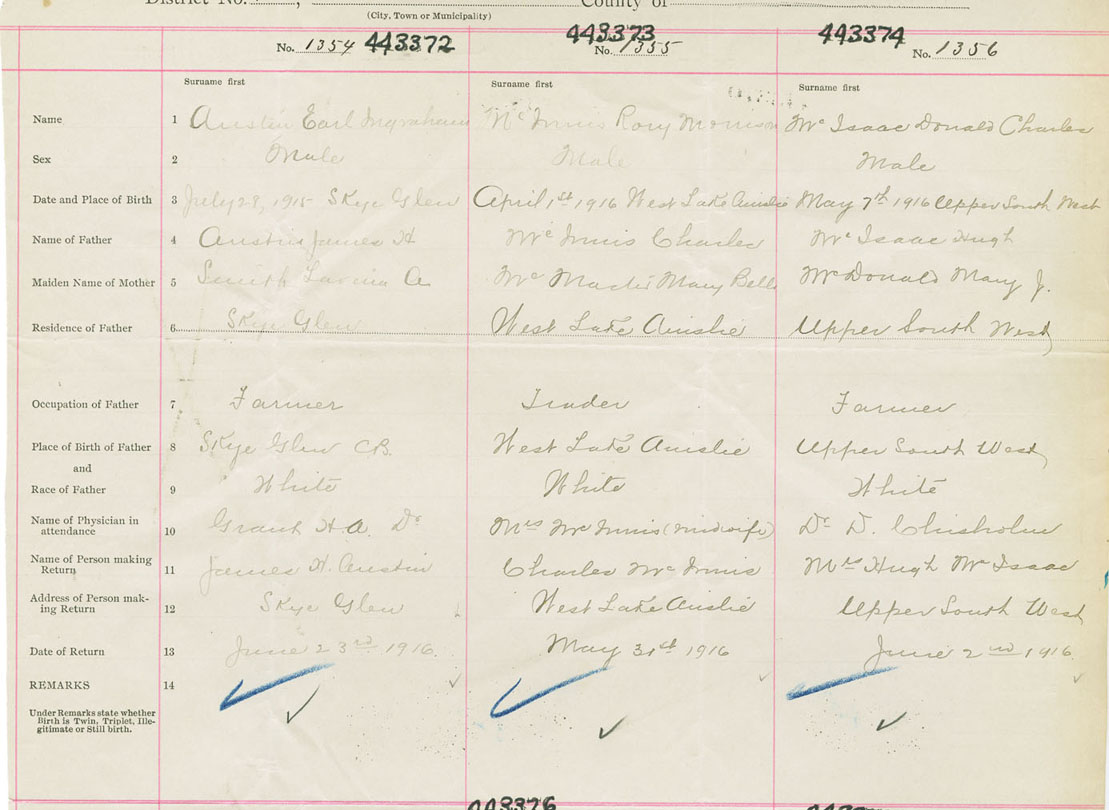 District No. County of
(City, Town or Municipality)
No. 1354 443372 443373 No. 1355 443374 No. 1356
Surname first Surname first Surname first
Name 1 Austin Earl Ingraham Mc Innis Rory Morrison Mc Isaac Donald Charles
Sex 2 Male Male Male
Date and Place of Birth 3 July 28, 1915 Skye Glen April 1st 1916 West Lake Ainslie May 7th 1916 Upper South West
Name of Father 4 Austin James H Mc Innis Charles Mc Isaac Hugh
Maiden Name of Mother 5 Smith Lavina A Mc Master Mary Bell McDonald Mary J.
Residence of Father 6 Skye Glen West Lake Ainslie Upper South West
Occupation of Father 7 Farmer Trader Farmer
Place of Birth of Father 8 Skye Glen C.B. West Lake Ainslie Upper South West
and
Race of Father 9 White White White
Name of Physician in
attendance 10 Grant H.A. Dr Mrs Mc Innis (midwife) Dr D. Chisholm
Name of Person making
Return 11 James H. Austin Charles Mc Innis Mrs Hugh Mc Isaac
Address of Person mak-
ing Return 12 Skye Glen West Lake Ainslie Upper South West
Date of Return 13 June 23rd 1916. May 31st 1916 June 2nd 1916
REMARKS 14
Under Remarks state whether
Birth is Twin, Triplet, Ille-
gitimate or Still birth.
443376